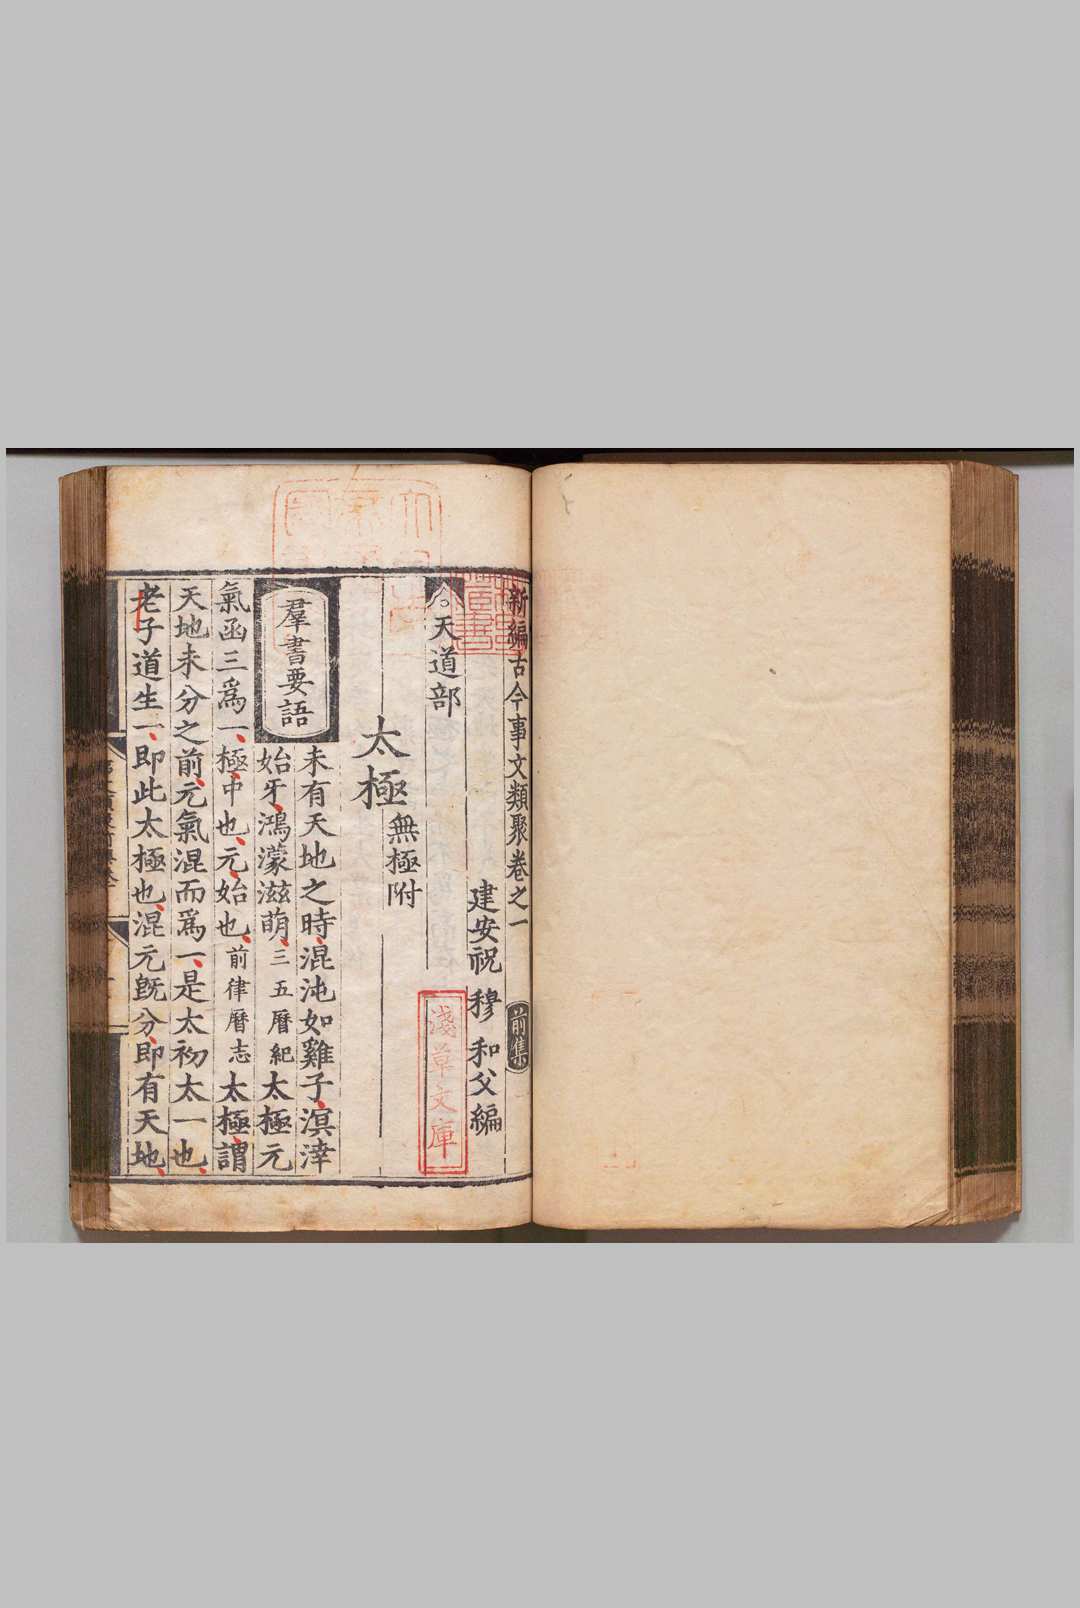 新編古今事文類聚卷之一 前集
建安祝 穆 和父編
天道部
太極 無極附
羣書要語
未有天地之時混沌如雞子溟涬
始牙鴻濛滋萌三五曆紀太極元
氣函三爲一極中也元始也前律曆志太極謂
天地未分之前元氣混而爲一是太初太一也
老子道生一即此太極也混元旣分即有天地
淺草文庫